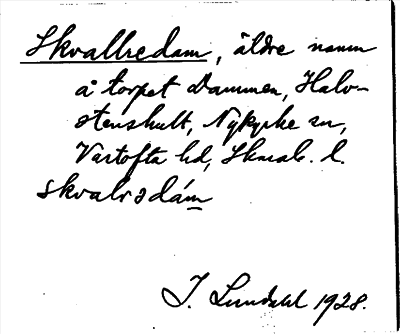 Skvallredam, äldre namn
å torpet Dammen, Halv-
stenshult, Nykyrke sn,
Vartofta hd, Skarab. l.
skvalrədám
J. Lundahl 1928.